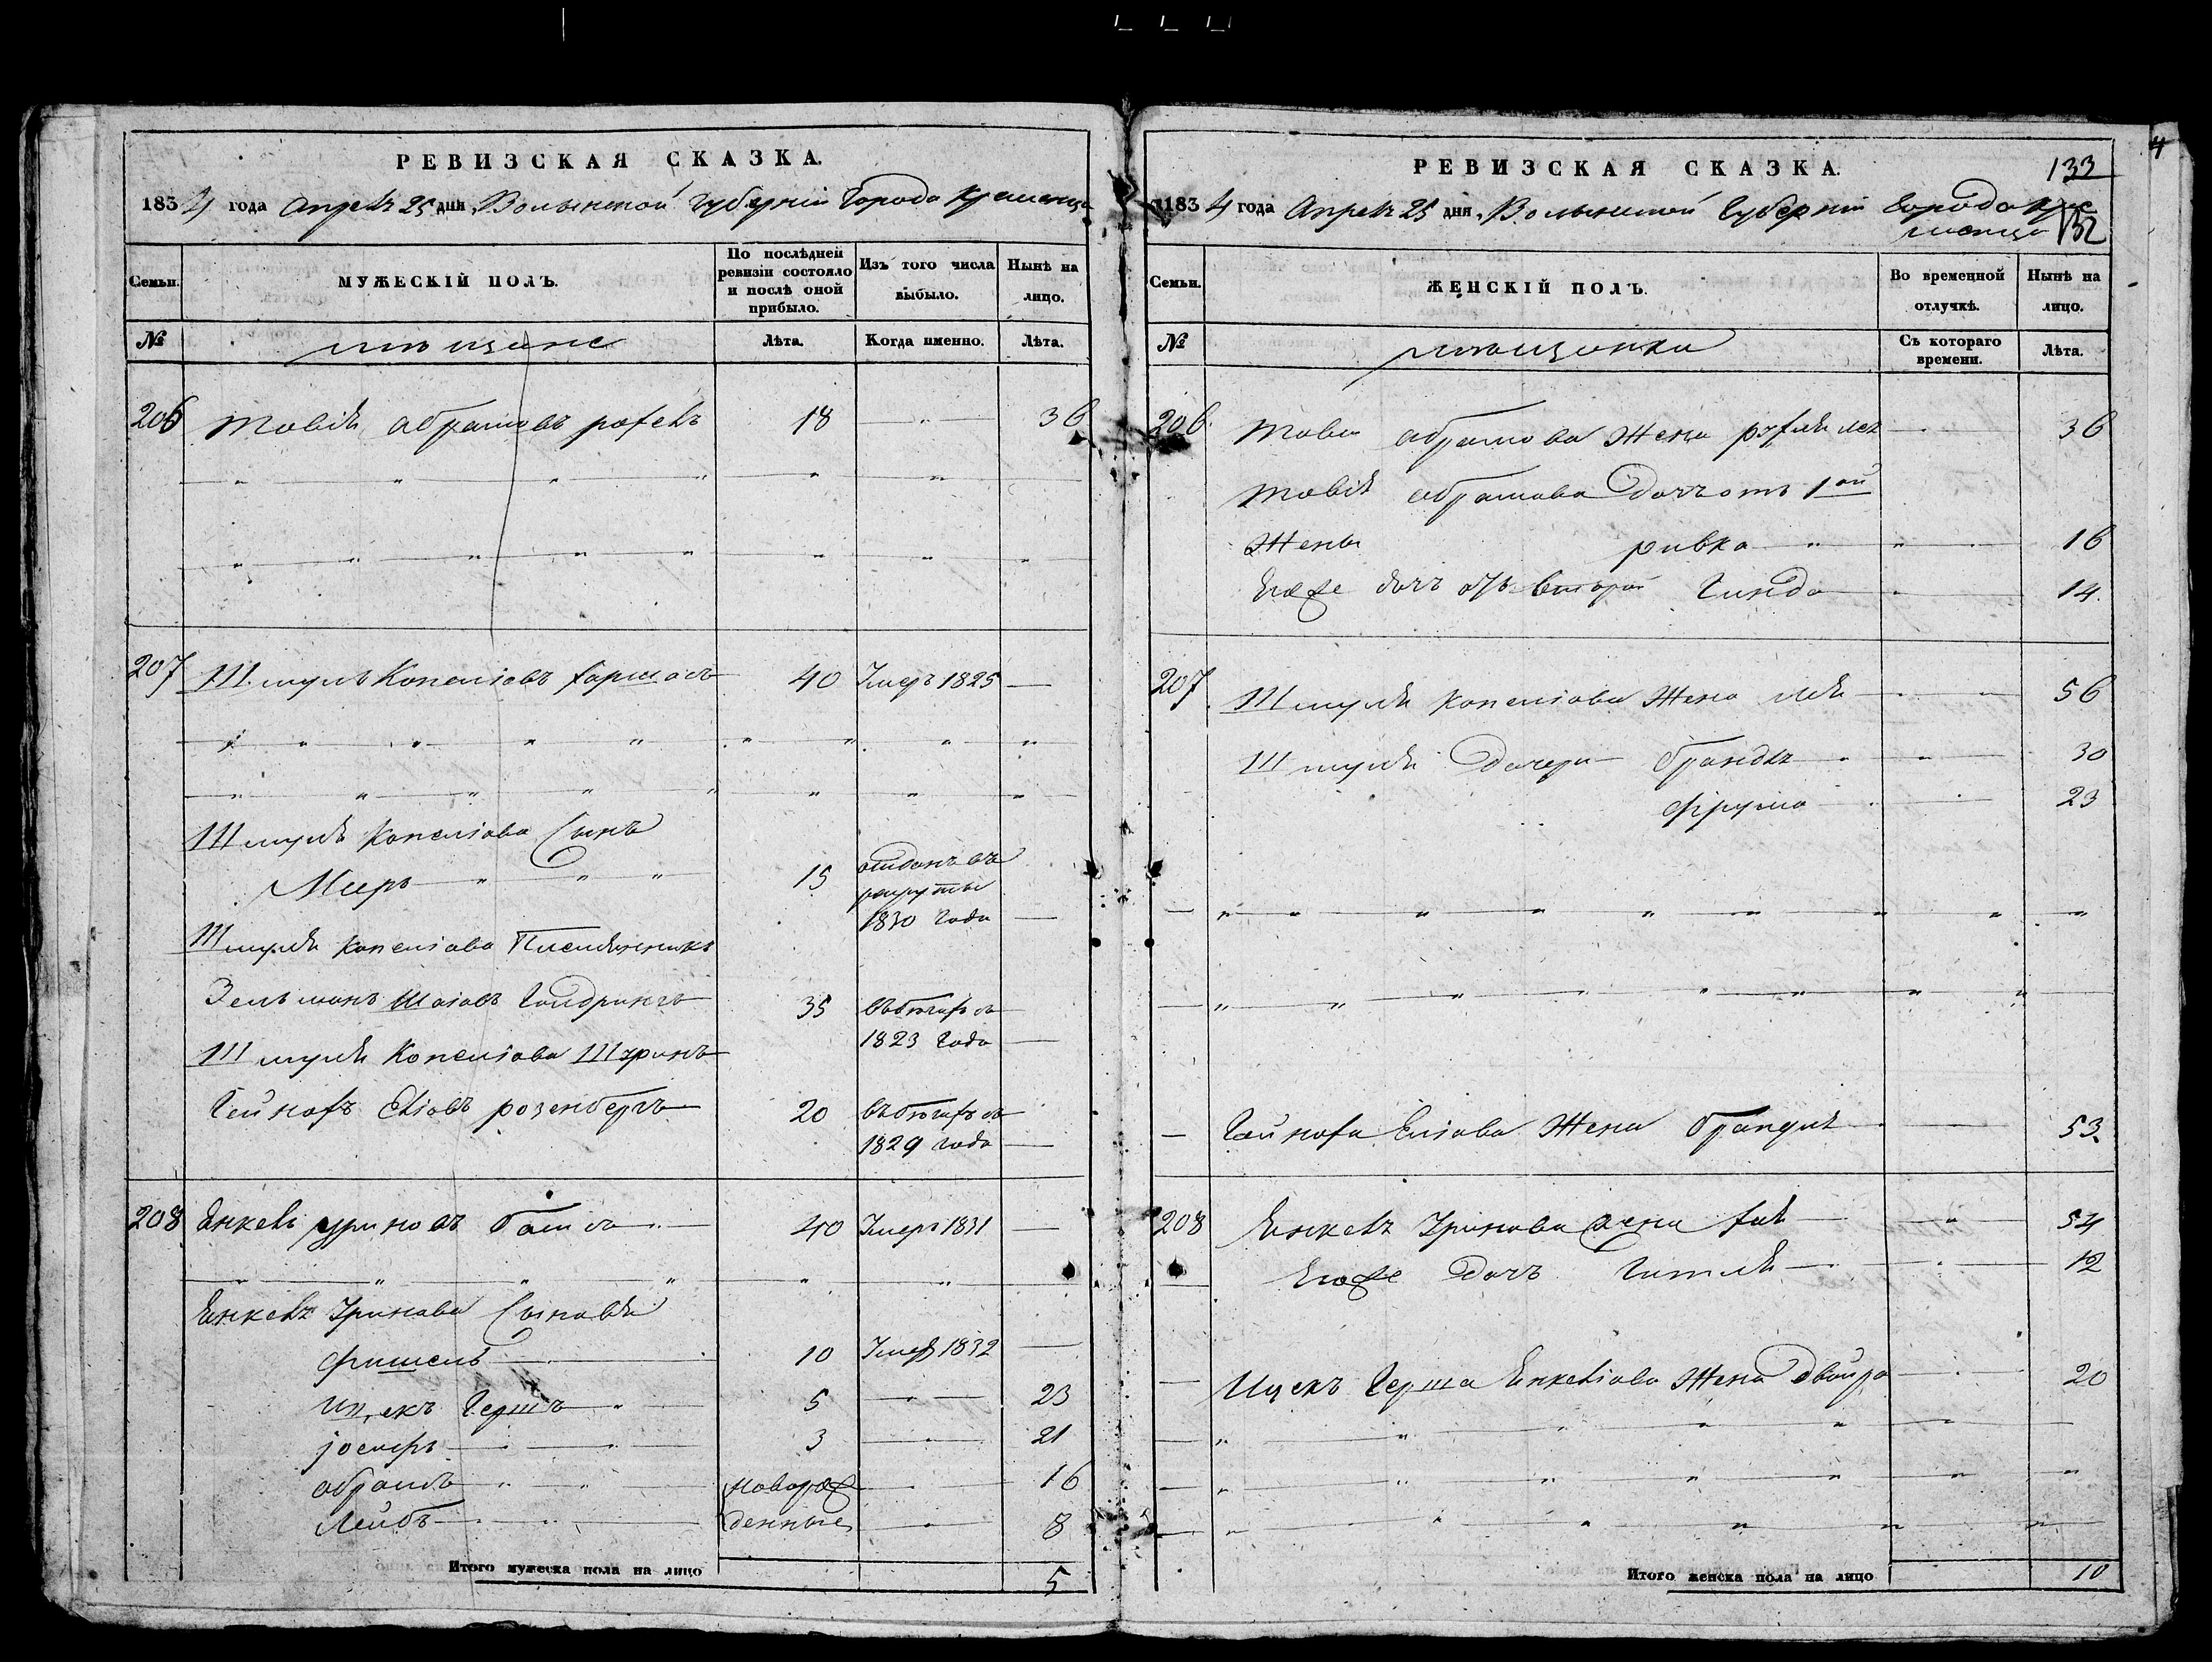 РЕВИЗСКАЯ СКАЗКА.
1834 года Апреля 25 дня, Волынской Губерніи Города Кременца
Семьи.
МУЖЕСКІЙ ПОЛЪ.
По послѣдней ревизіи состояло и послѣ оной прибыло.
Изъ того числа выбыло.
Нынѣ на лицо.
№
мѣщане
Лѣта.
Когда именно.
Лѣта.
206 Мовій Абрамовъ 18 — 36
207 Шмуль Копеліовъ 40 Умеръ 1825 —
Шмуля Копеліова Сынъ
Мееръ 15 отданъ въ
рекруты
1830 года —
Шмуля Копеліова Племянникъ
Зельманъ Шаіовъ 35
1823 года —
Шмуля Копеліова Шуринъ
Еліовъ розенбергъ 20
1829 года —
208 Енкель Уриновъ 40 Умеръ 1831 —
Енкеля Уринова Сыновья
Фишель 10 Умеръ 1832 —
Ицекъ Гершъ 5 — 23
Іосифъ 3 — 21
Абрамъ новорож 16
Лейбъ денные 8
Итого мужеска пола на лицо 5
РЕВИЗСКАЯ СКАЗКА.
133
1834 года Апреля 25 дня, Волынской Губерніи Города Кре
менца 132
Семьи.
ЖЕНСКІЙ ПОЛЪ.
Во временной отлучкѣ.
Нынѣ на лицо.
№
мѣщанки
Съ котораго времени.
Лѣта.
206. Абрамова Жена 36
Абрамова Дочь отъ 1ой
Жены ривка 16
Егоже дочь отъ второй Гинда 14.
207. Шмуля Копеліова Жена Лея 56
Шмуля Дочери 30
Фрума 23
Еліова Жена 53.
208 Енкеля Уринова жена 54
Егоже Дочь Гитля 12
Ицекъ Герша Енкеліова Жена Двойра 20
Итого женска пола на лицо 10